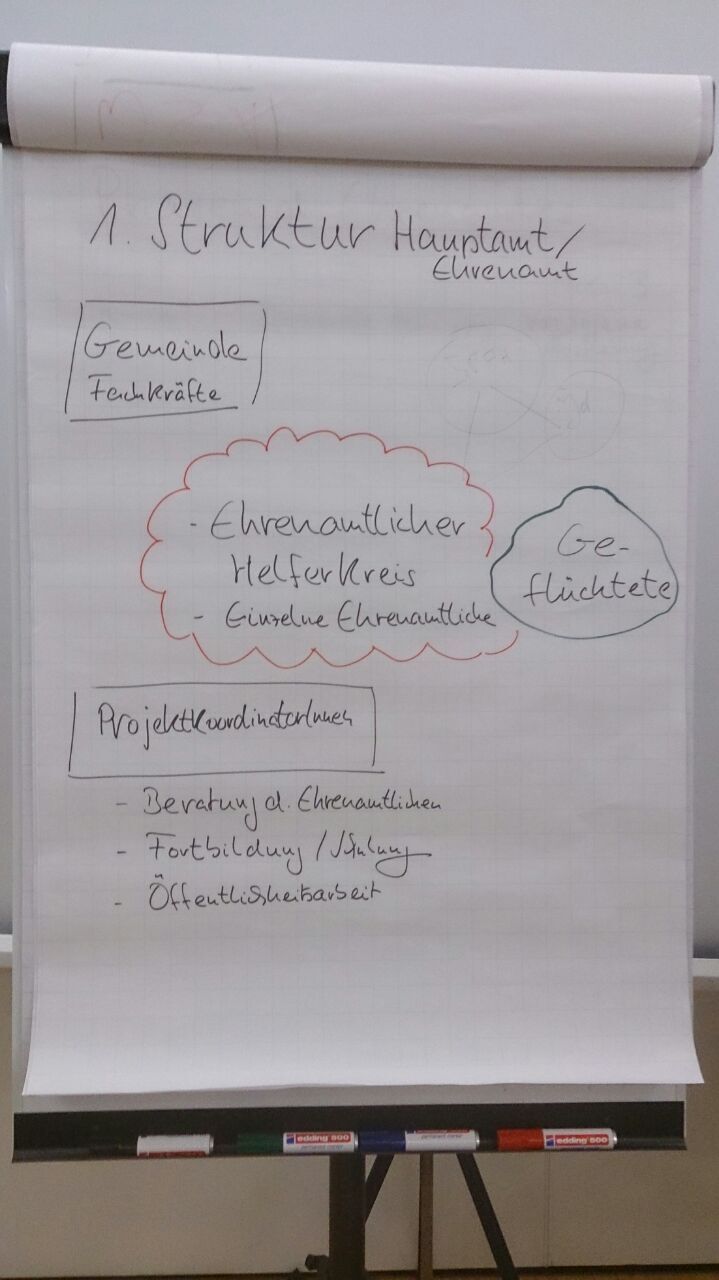 1. Struktur Hauptamt/
Ehrenamt
Gemeinde
Fachkräfte
- Ehrenamtlicher
Helferkreis
- Einzelne Ehrenamtliche
Ge-
flüchtete
ProjektkoordinatorInnen
- Beratung d. Ehrenamtlichen
- Fortbildung / Schulung
- Öffentlichkeitsarbeit
edding 500
permanent marker
edding 800
permanent marker
edding 500